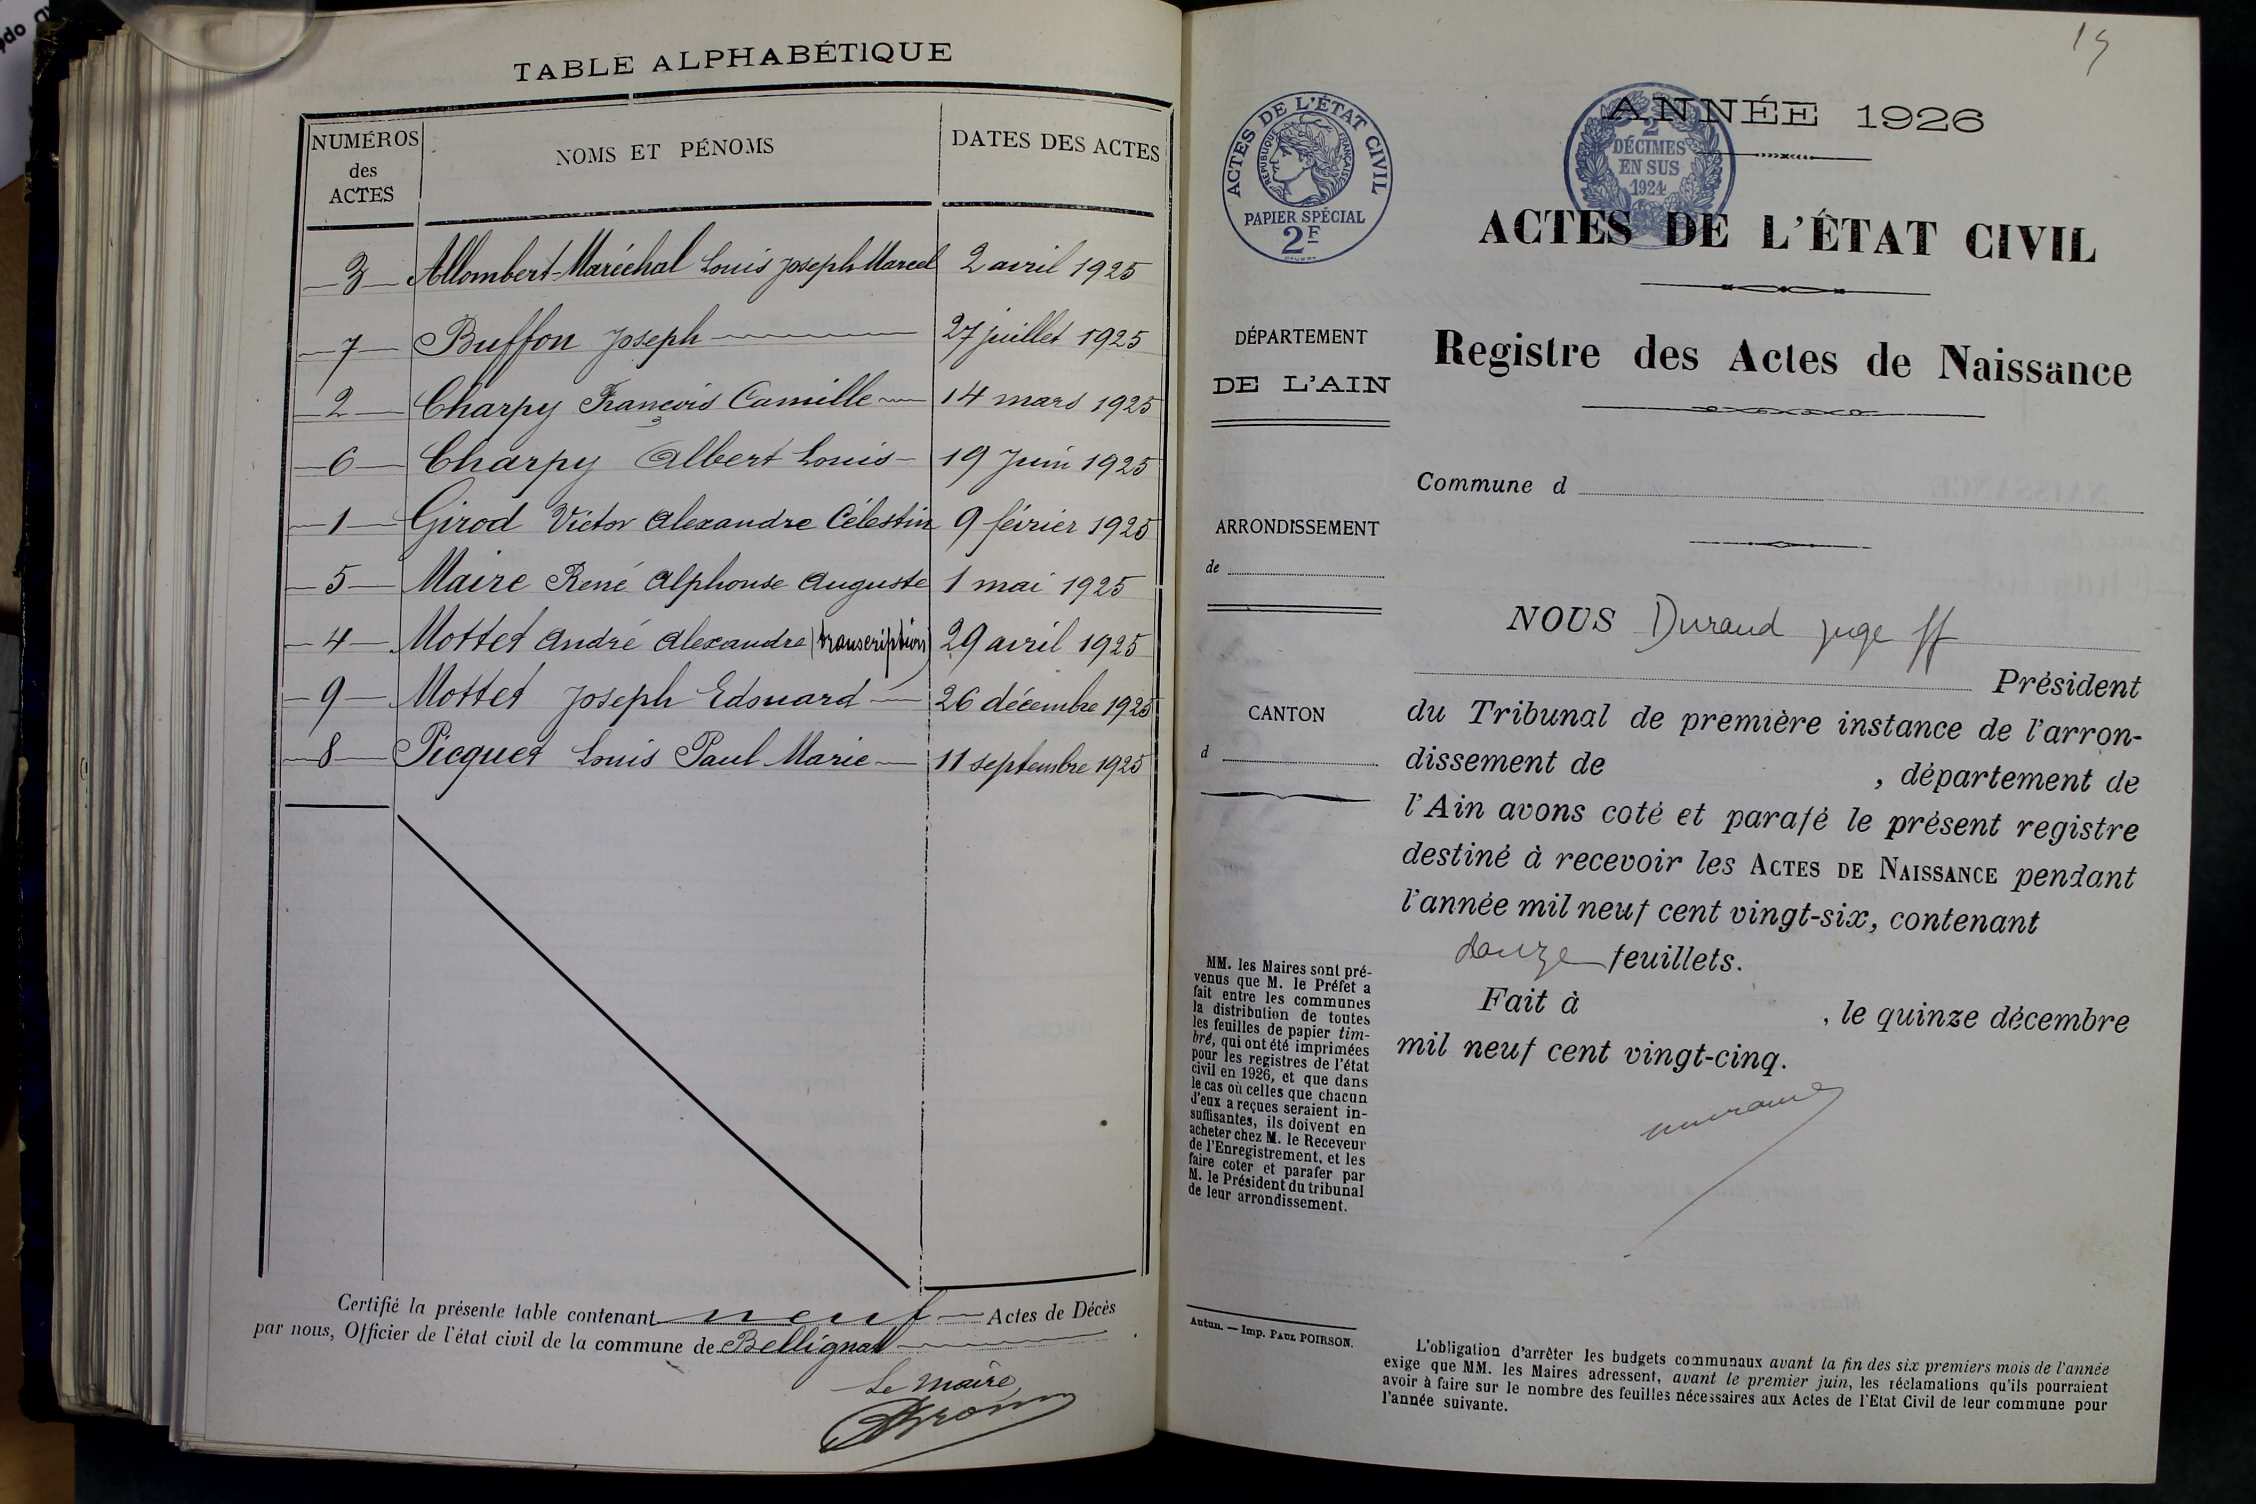 TABLE ALPHABÉTIQUE
NUMÉROS
des
ACTES
NOMS ET PÉNOMS
DATES DES ACTES
3 Allombert-Maréchal Louis Joseph Marcel 2 avril 1925
7 Buffon Joseph 27 juillet 1925
2 Charpy François Camille 14 mars 1925
6 Charpy Albert Louis 19 Juin 1925
1 Girod Victor Alexandre Célestin 9 février 1925
5 Maire René Alphonse Auguste 1 mai 1925
4 Mottet André Alexandre (transcription) 29 avril 1925
9 Mottet Joseph Edouard 26 décembre 1925
8 Picquet Louis Paul Marie 11 septembre 1925
Certifié la présente table contenant neuf Actes de Décès
par nous, Officier de l'état civil de la commune de Bellignat
Le Maire
ACTES DE L'ÉTAT CIVIL
RÉPUBLIQUE FRANÇAISE
PAPIER SPÉCIAL
2F
2
DÉCIMES
EN SUS
1924
ANNÉE 1926
ACTES DE L'ÉTAT CIVIL
Registre des Actes de Naissance
DÉPARTEMENT
DE L'AIN
ARRONDISSEMENT
de
CANTON
d
MM. les Maires sont pré-
venus que M. le Préfet a
fait entre les communes
la distribution de toutes
les feuilles de papier tim-
bré, qui ont été imprimées
pour les registres de l'état
civil en 1926, et que dans
le cas où celles que chacun
d'eux a reçues seraient in-
suffisantes, ils doivent en
acheter chez M. le Receveur
de l'Enregistrement, et les
faire coter et parafer par
M. le Président du tribunal
de leur arrondissement.
Autun. — Imp. PAUL POIRSON.
Commune d
NOUS Durand juge ff
Président
du Tribunal de première instance de l'arron-
dissement de , département de
l'Ain avons coté et parafé le présent registre
destiné à recevoir les ACTES DE NAISSANCE pendant
l'année mil neuf cent vingt-six, contenant
feuillets.
Fait à , le quinze décembre
mil neuf cent vingt-cinq.
L'obligation d'arrêter les budgets communaux avant la fin des six premiers mois de l'année
exige que MM. les Maires adressent, avant le premier juin, les réclamations qu'ils pourraient
avoir à faire sur le nombre des feuilles nécessaires aux Actes de l'Etat Civil de leur commune pour
l'année suivante.